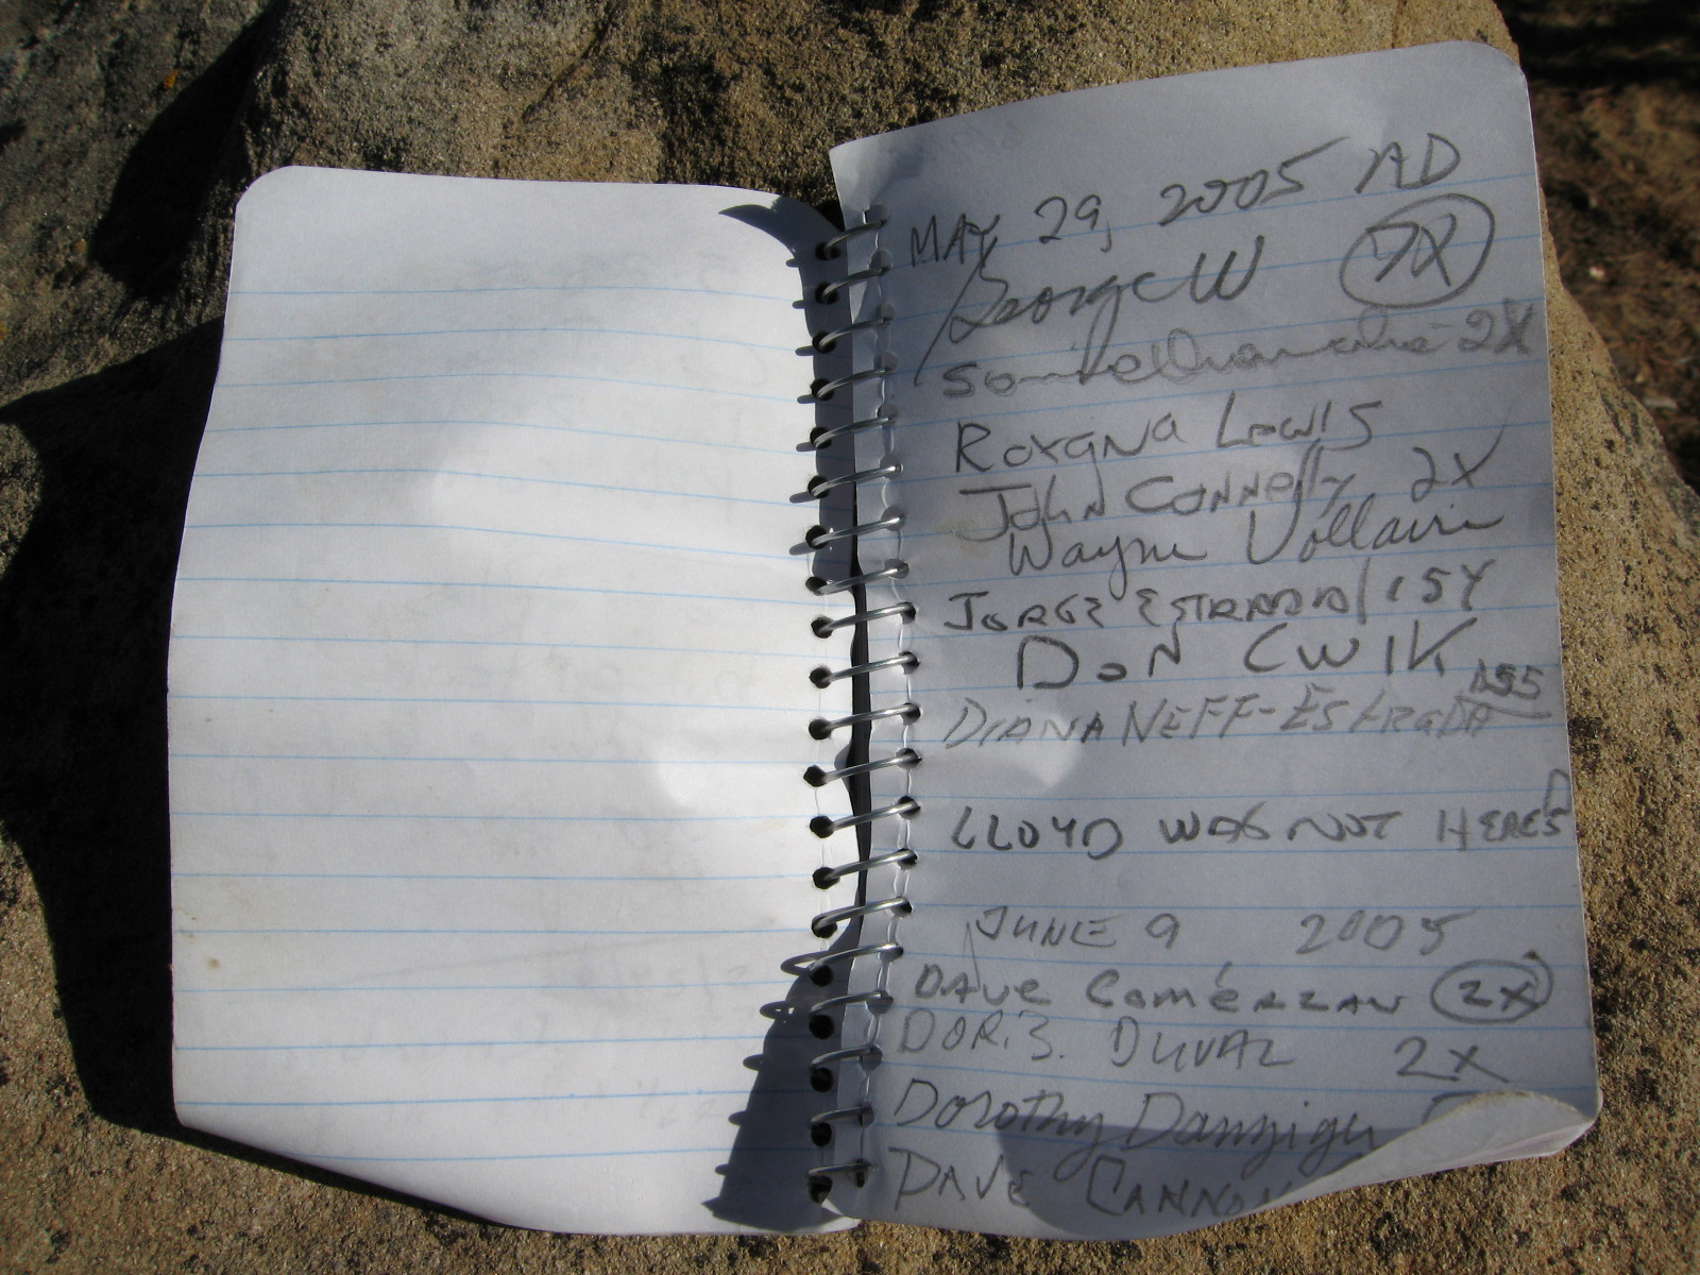 MAY 29, 2005 AD
George W 7X
2X
Roxana Lewis
John Connelly 2X
Wayne Vollaire
JORGE ESTRADA/15Y
DON CWIK
DIANA NEFF-ESTRADA 155
LLOYD WAS NOT HERE
JUNE 9 2005
DAVE 2X
DORIS DUVAL 2X
Dorothy Danziger
DAVE CANNON